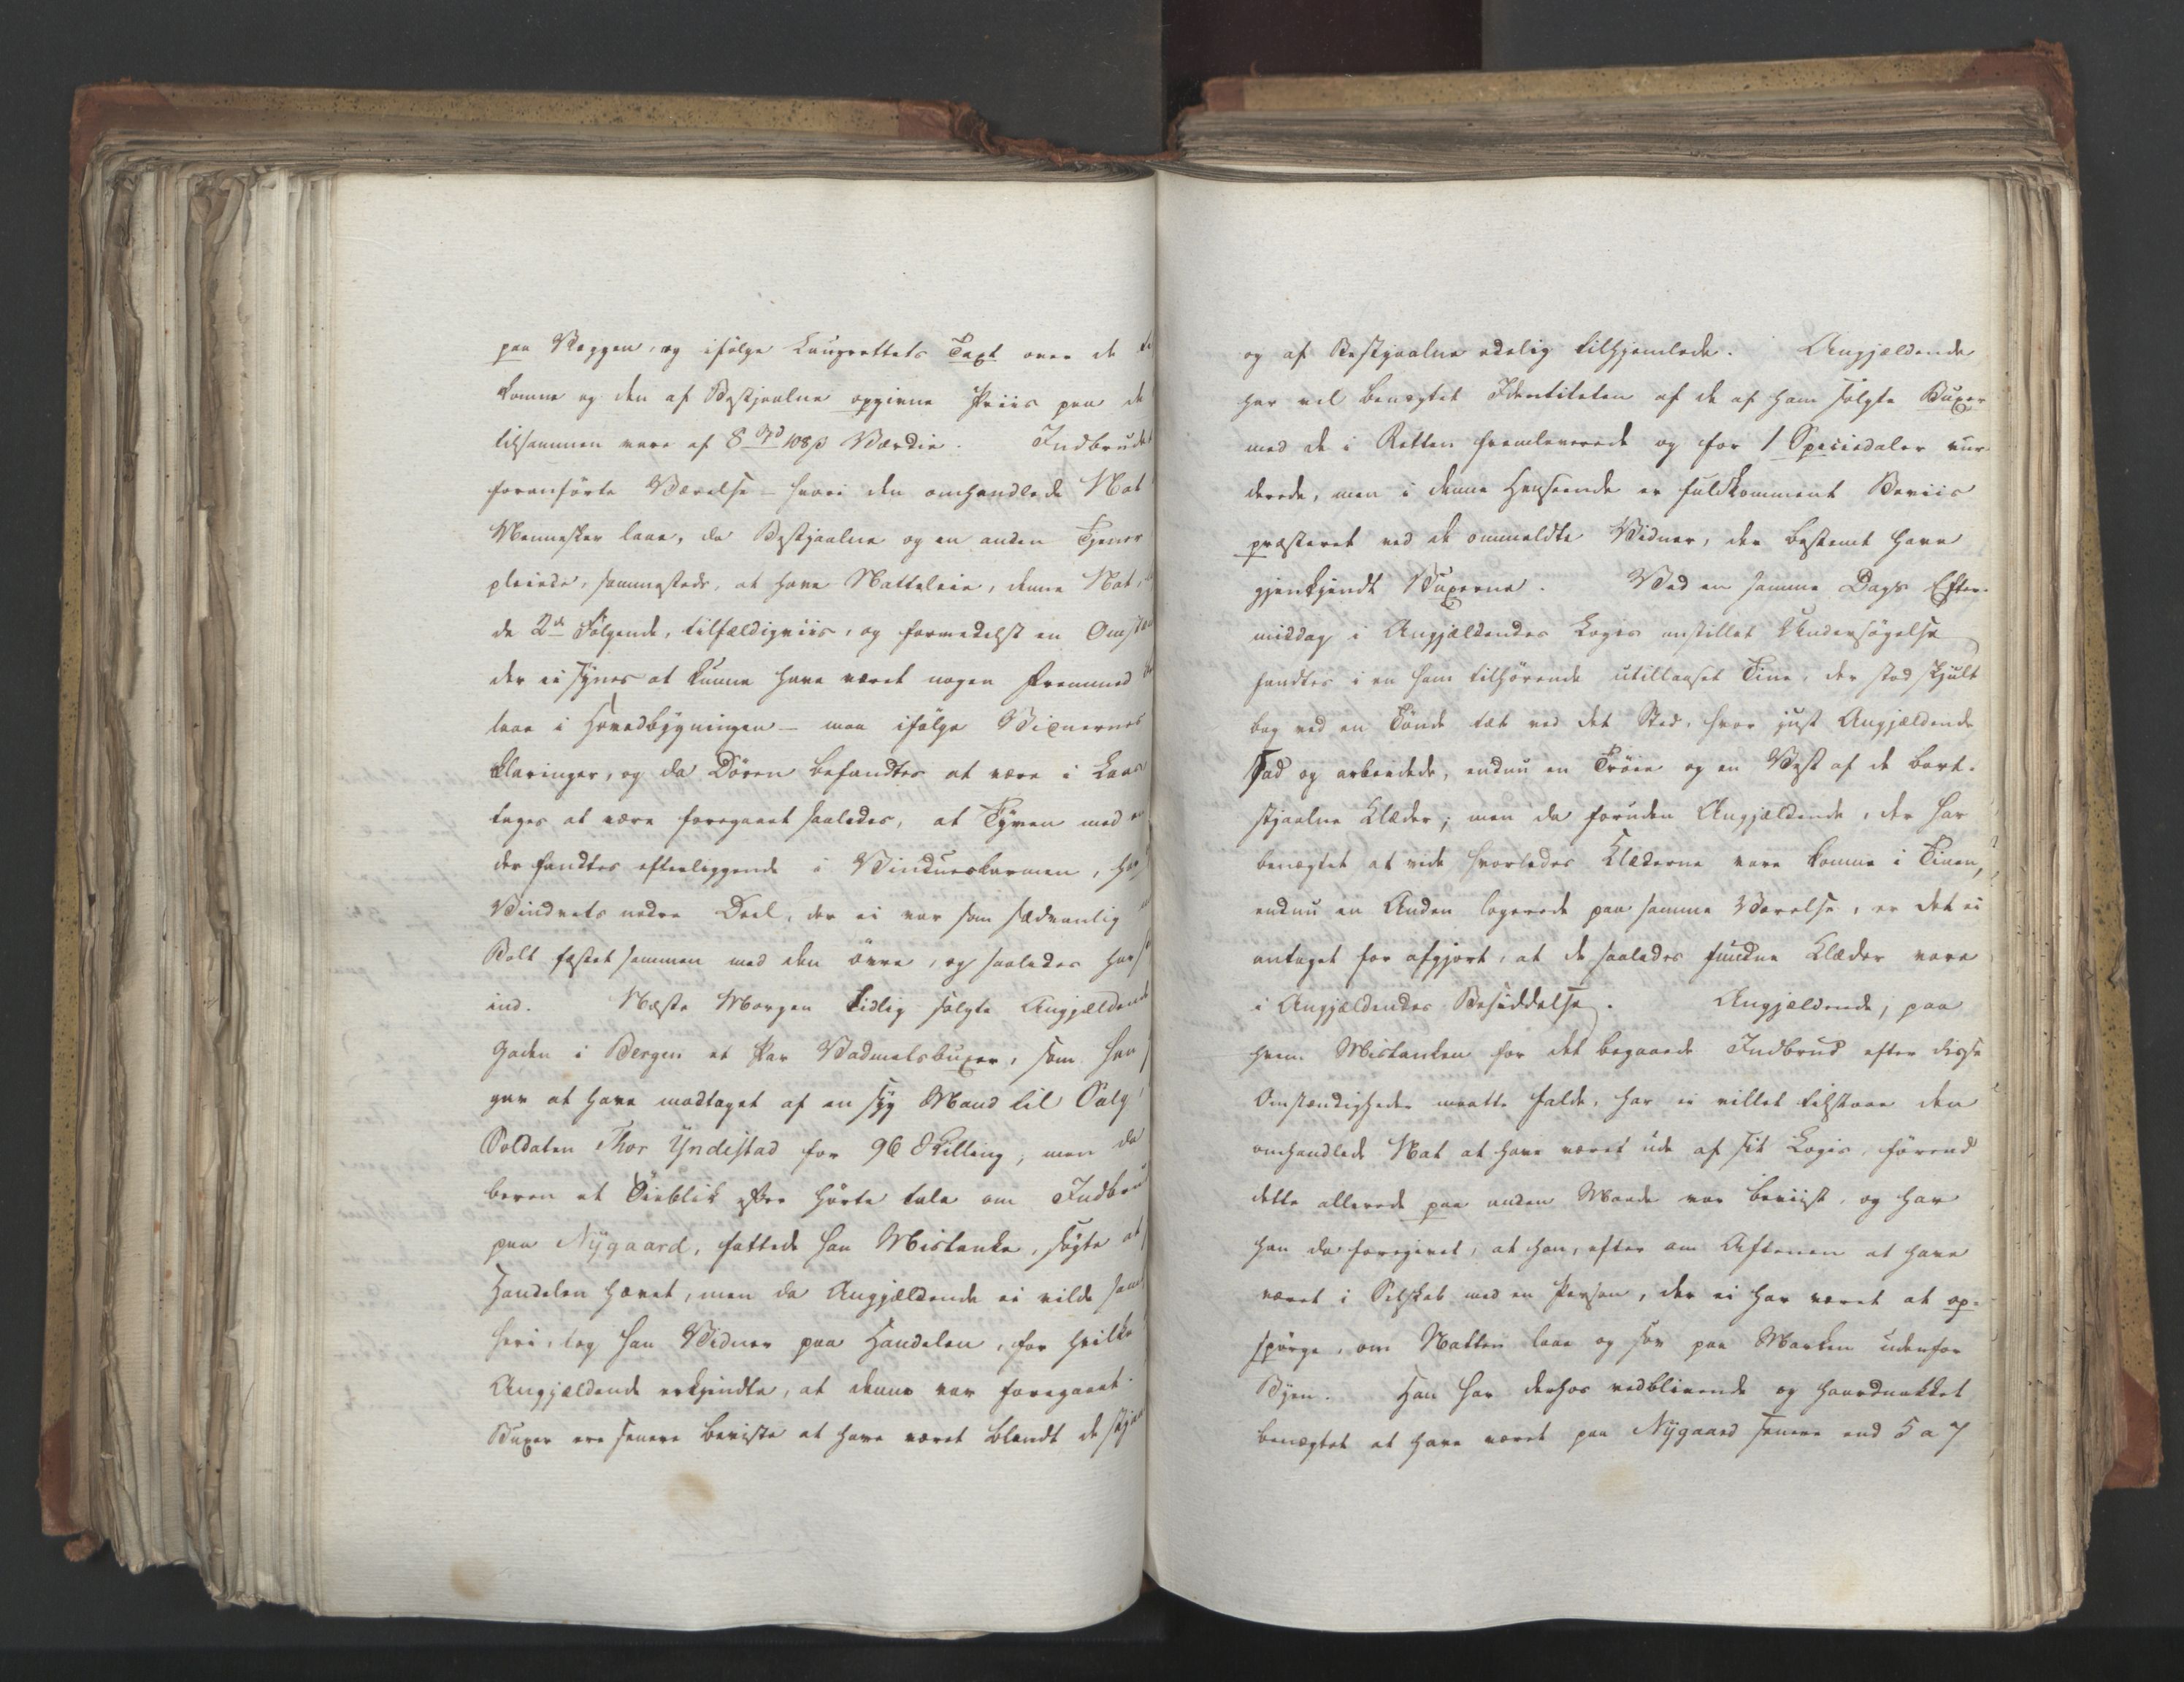 paa Væggen, og ifølge Laugrettets Taxt over de
komne og den af Bestjaalne opgivne Priis paa de
tilsammen være af 8 Spd 108 s Værdie. Indbrudet
foranførte Værelse – hvori den omhandlede Nat
Mennesker laae, da Bestjaalne og en anden Tjener
pleiede, sammesteds, at have Natteleie, denne Nat,
de 2de Følgende, tilfældigviis, og formedelst en Omstæn
der ei synes at kunne have været nogen Fremmed
laae i Hovedbygningen – maa ifølge Vidnernes
klaringer, og da Døren befandtes at være i Laas
tages at være foregaaet saaledes, at Tyven med en
der fandtes efterliggende i Vindueskarmen,
Vinduets nedre Deel, der ei var som sædvanlig
Bolt fæstet sammen med den øvre, og saaledes
ind. Næste Morgen tidlig solgte Angjældende
Gaden i Bergen et Par Vadmelsbuxer, som han
gav at have modtaget af en syg Mand til Salg
Soldaten Thor Yndestad for 96 Skilling, men da
beren et Øieblik efter hørte tale om Indbrud
paa Nygaard, fattede han Mistanke, søgte at
Handelen hævet, men da Angjældende ei vilde sam
heri, tog han Vidner paa Handelen, for hvilke
Angjældende erkjendte, at denne var foregaaet.
Buxer ere senere beviste at have været blandt de stjaa
og af Bestjaalne edelig tilhjemlede. Angjældende
har vel benægtet Identiteten af de af ham solgte Buxer
med de i Retten fremleverede og for 1 Speciedaler vur-
derede, men i denne Henseende er fuldkomment Beviis
præsteret ved de ommeldte Vidner, der bestemt have
gjenkjendt Buxerne. Ved en samme Dags Efter-
middag i Angjældendes Logis anstillet Undersøgelse
fandtes i en ham tilhørende utillaaset Tine, der stod skjult
bag ved en Tønde tæt ved det Sted, hvor just Angjældende
sad og arbeidede, endnu en Trøie og en Vest af de bort-
stjaalne Klæder; men da foruden Angjældende, der har
benægtet at vide hvorledes Klæderne vare komne i Tinen,
endnu en Anden logerede paa samme Værelse, er det ei
antaget for afgjort, at de saaledes fundne Klæder vare
i Angjældendes Besiddelse. Angjældende, paa
hvem Mistanken for det begaaede Indbrud efter disse
Omstændigheder maatte falde, har ei villet tilstaae den
omhandlede Nat at have været ude af sit Logis, førend
dette allerede paa anden Maade var beviist, og har
han da foregivet, at han, efter om Aftenen at have
været i Selskab med en Person, der ei har været at op-
spørge, om Natten laae og sov paa Marken udenfor
Byen. Han har derhos vedblivende og haardnakket
benægtet at have været paa Nygaard senere end 5 a 7